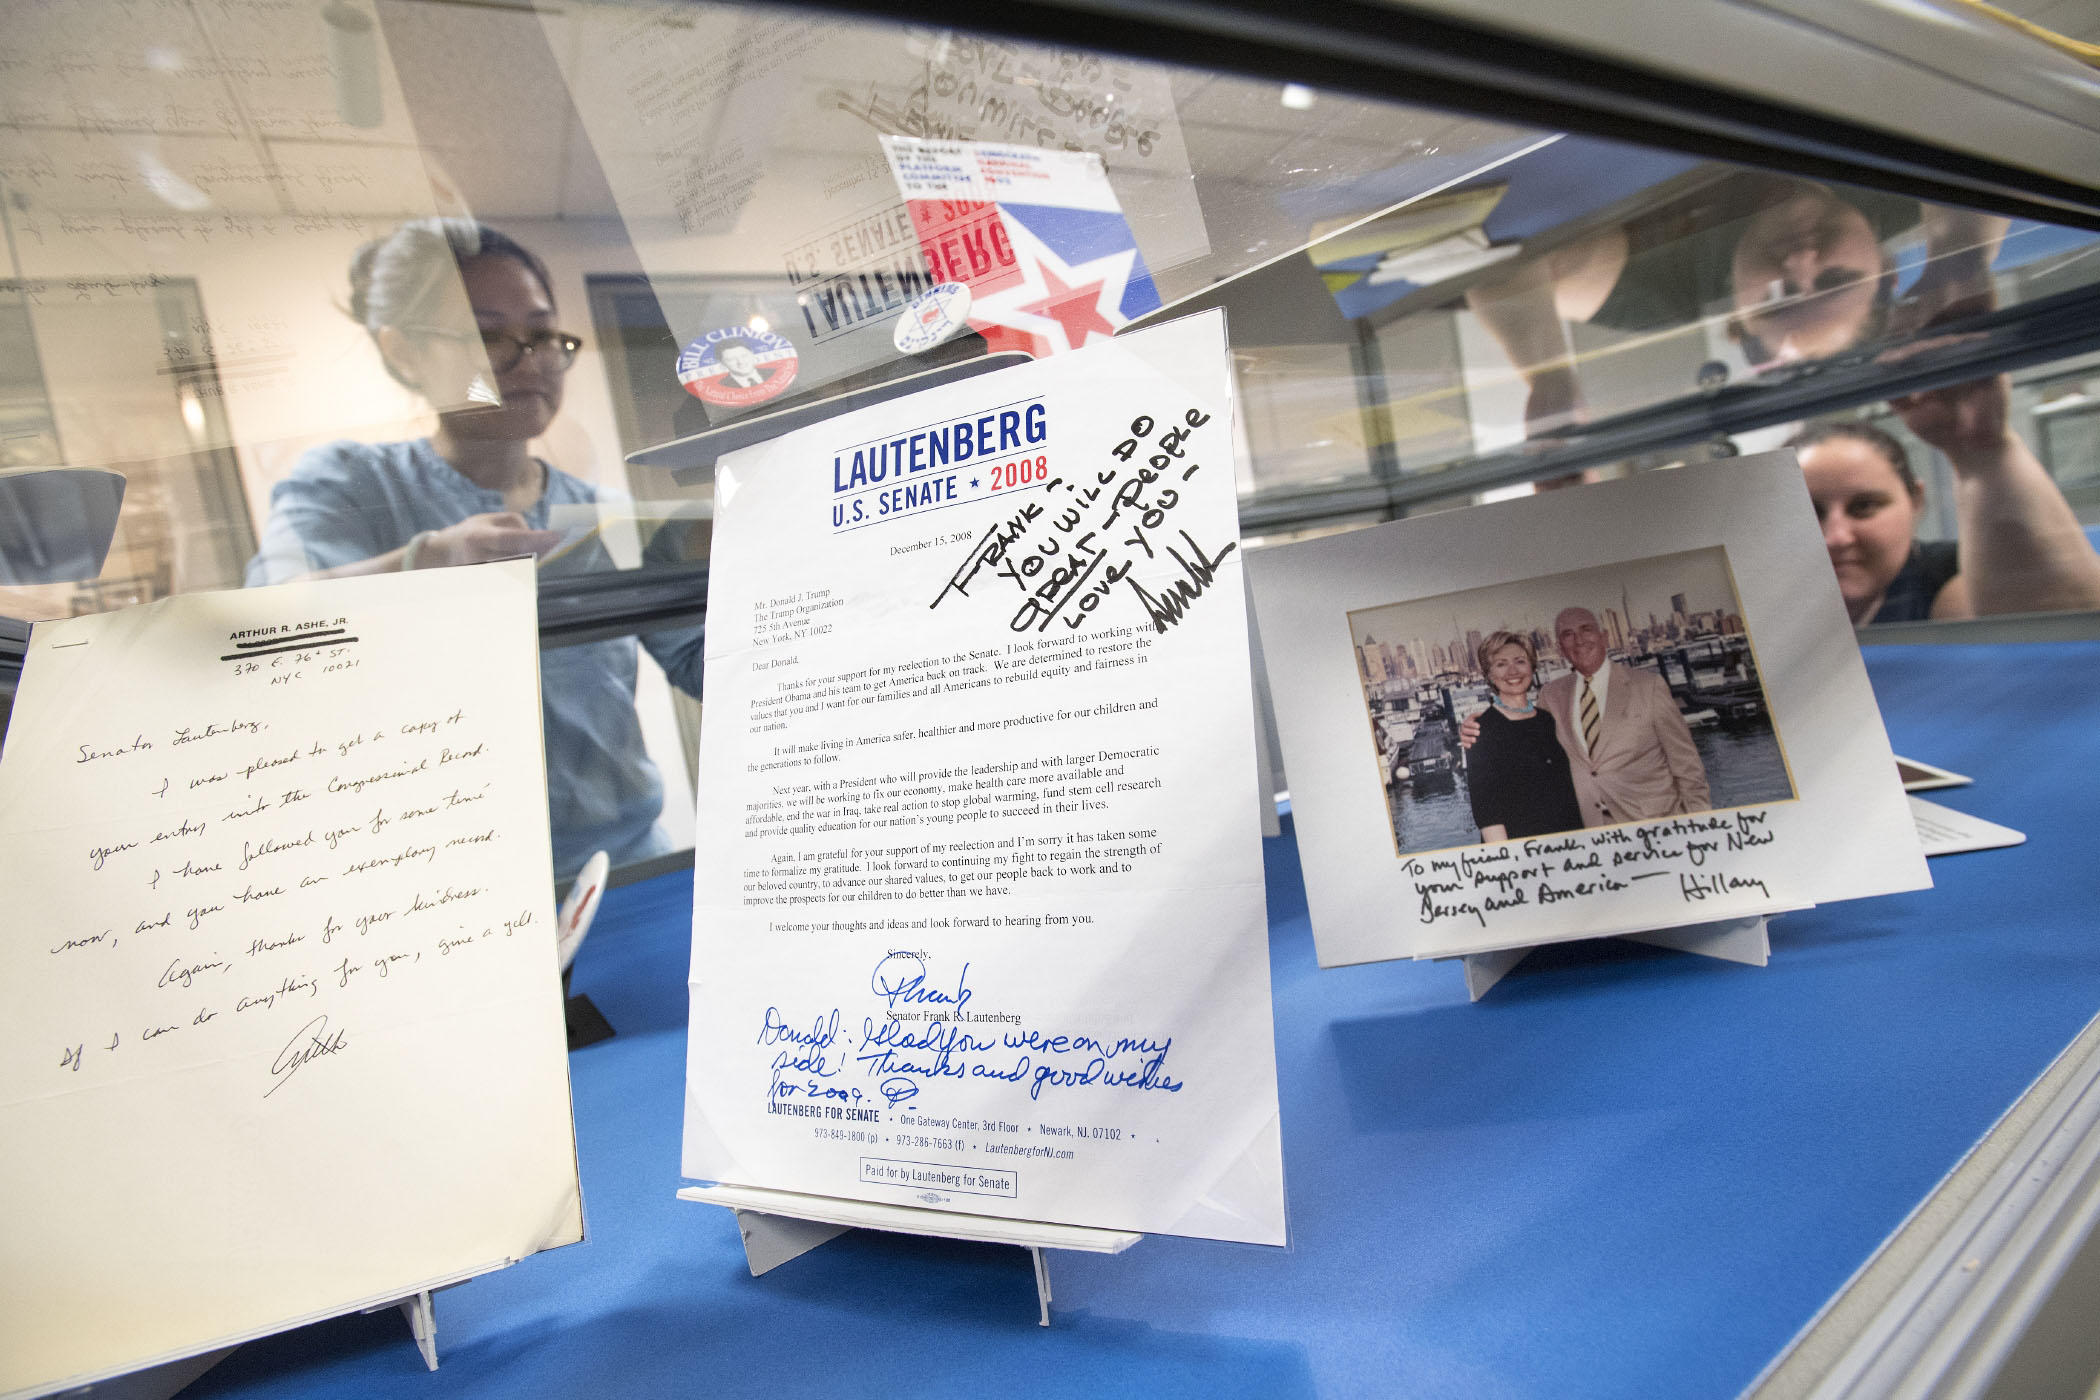 ARTHUR R. ASHE, JR.
370 E. 76th ST.
NYC 10021
Senator Lautenberg,
I was pleased to get a copy of
your entry into the Congressional Record.
I have followed you for some time
now, and you have an exemplary record.
Again, thanks for your kindness.
If I can do anything for you, give a yell.
Arthur
THE REPORT
OF THE
PLATFORM
COMMITTEE
TO THE
DEMOCRATIC
NATIONAL
CONVENTION
1992
BILL CLINTON
PRESIDENT
LAUTENBERG
U.S. SENATE ★ 2008
FRANK -
YOU WILL DO
GREAT - PEOPLE
LOVE YOU -
December 15, 2008
Mr. Donald J. Trump
The Trump Organization
725 5th Avenue
New York, NY 10022
Dear Donald,
Thanks for your support for my reelection to the Senate. I look forward to working with
President Obama and his team to get America back on track. We are determined to restore the
values that you and I want for our families and all Americans to rebuild equity and fairness in
our nation.
It will make living in America safer, healthier and more productive for our children and
the generations to follow.
Next year, with a President who will provide the leadership and with larger Democratic
majorities, we will be working to fix our economy, make health care more available and
affordable, end the war in Iraq, take real action to stop global warming, fund stem cell research
and provide quality education for our nation's young people to succeed in their lives.
Again, I am grateful for your support of my reelection and I'm sorry it has taken some
time to formalize my gratitude. I look forward to continuing my fight to regain the strength of
our beloved country, to advance our shared values, to get our people back to work and to
improve the prospects for our children to do better than we have.
I welcome your thoughts and ideas and look forward to hearing from you.
Sincerely,
Frank
Senator Frank R. Lautenberg
Donald: Glad you were on my
side! Thanks and good wishes
for 2009.
LAUTENBERG FOR SENATE • One Gateway Center, 3rd Floor • Newark, NJ. 07102 •
973-849-1800 (p) • 973-286-7663 (f) • LautenbergforNJ.com
Paid for by Lautenberg for Senate
To my friend, Frank, with gratitude for
your support and service for New
Jersey and America — Hillary